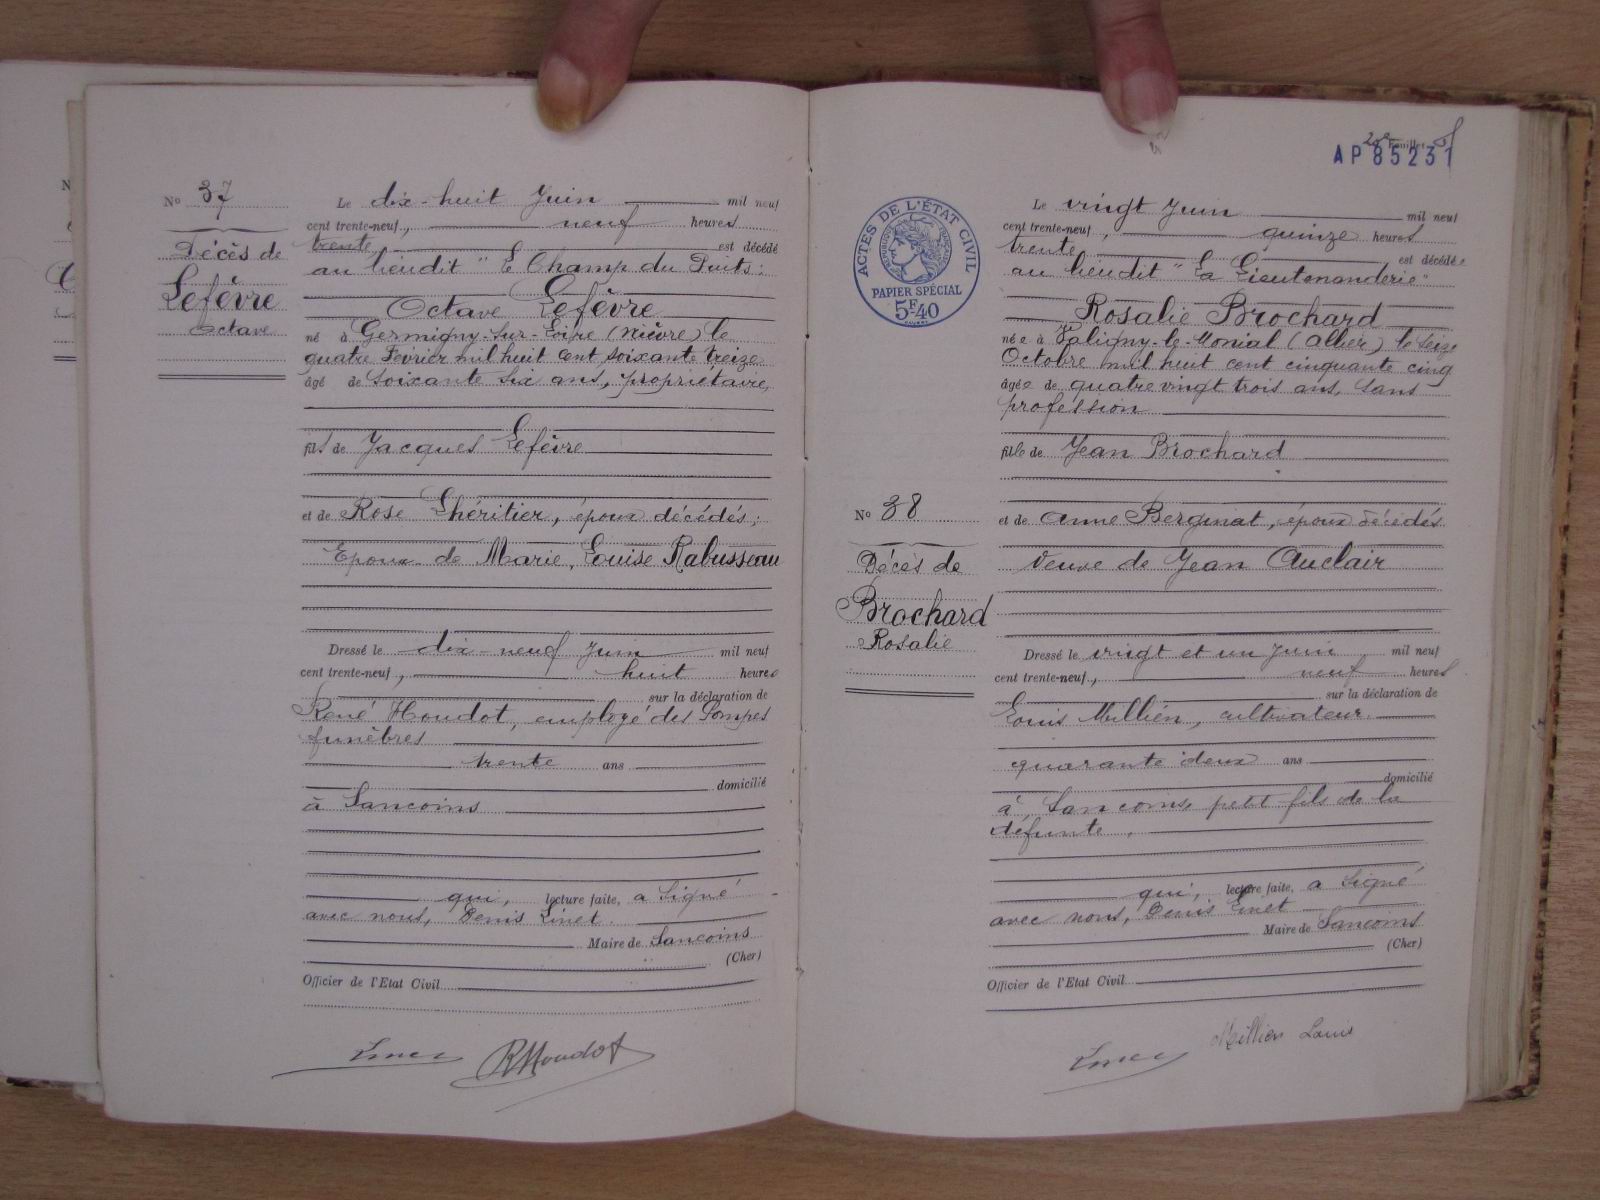 No 37
Décès de
Lefèvre
Octave
Le dix-huit Juin mil neuf
cent trente-neuf, neuf heures
trente, est décédé
au lieudit " Le Champ du Puits :
Octave Lefèvre
né à Germigny-sur-Loire (Nièvre) le
quatre Février mil huit cent soixante treize
âgé de soixante six ans, propriétaire,
fils de Jacques Lefèvre
et de Rose Lhéritier, époux décédés ;
Epoux de Marie, Louise Rabusseau
Dressé le dix-neuf Juin mil neuf
cent trente-neuf, huit heures
sur la déclaration de
René Houdot, employé des Pompes
funèbres
trente ans
domicilié
à Sancoins
qui, lecture faite, a signé
avec nous, Denis Linet.
Maire de Sancoins
(Cher)
Officier de l'Etat Civil
RHoudot
20e Feuillet
AP 85231
ACTES DE L'ÉTAT CIVIL
PAPIER SPÉCIAL
5F40
No 38
Décès de
Brochard
Rosalie
Le vingt Juin mil neuf
cent trente-neuf, quinze heures
trente, est décédée
au lieudit " La Lieutenanderie "
Rosalie Brochard
née à Saligny-le-Monial (Allier) le seize
Octobre mil huit cent cinquante cinq
âgée de quatre vingt trois ans, sans
profession
fille de Jean Brochard
et de Anne Berginiat, époux décédés
Veuve de Jean Auclair
Dressé le vingt et un Juin mil neuf
cent trente-neuf, neuf heures
sur la déclaration de
Louis Millien, cultivateur
quarante deux ans
domicilié
à Sancoins, petit fils de la
défunte,
qui, lecture faite, a signé
avec nous, Denis Linet
Maire de Sancoins
(Cher)
Officier de l'Etat Civil
Millien Louis